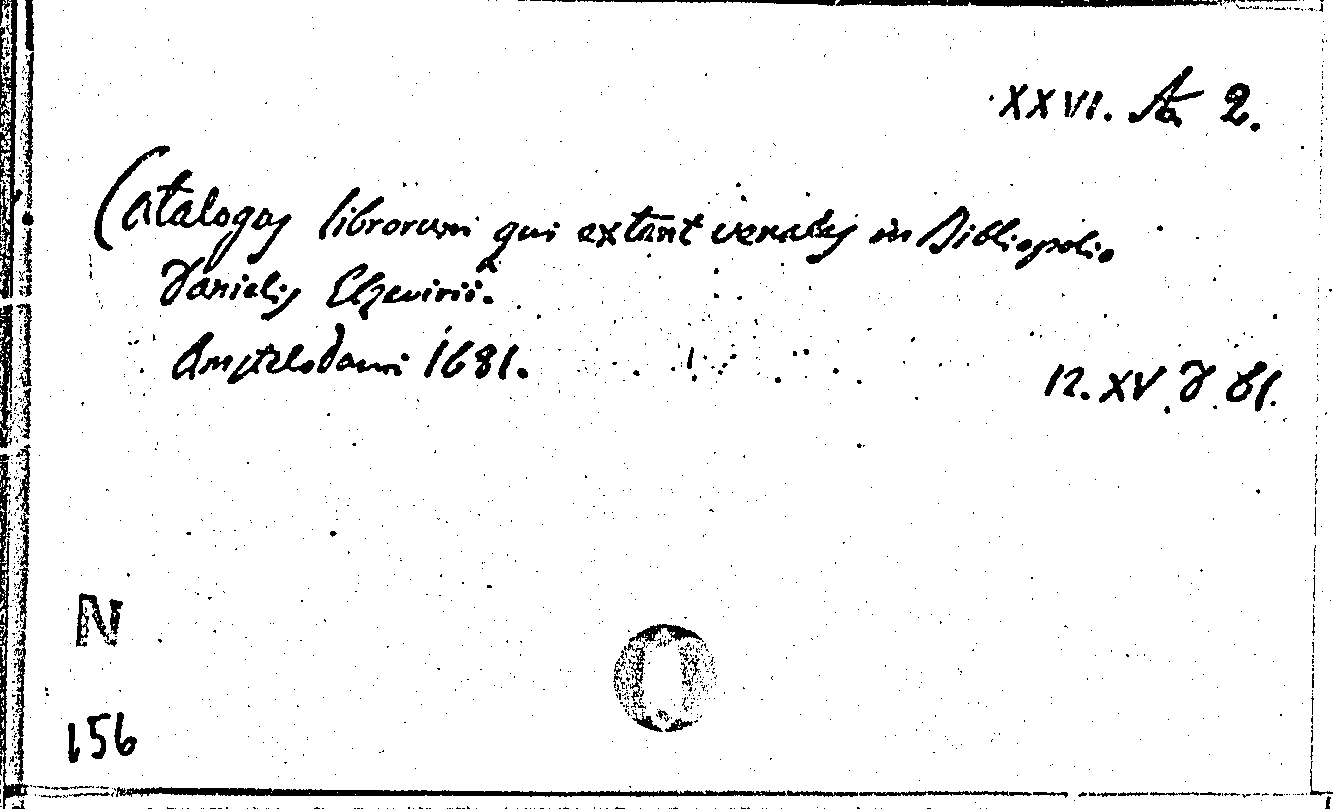 XXVI. Aa 2.
Catalogus librorum qui extant venales in Bibliopolio
Danielis Elzevirii.
Amstelodami 1681.
12. XV.
N
156